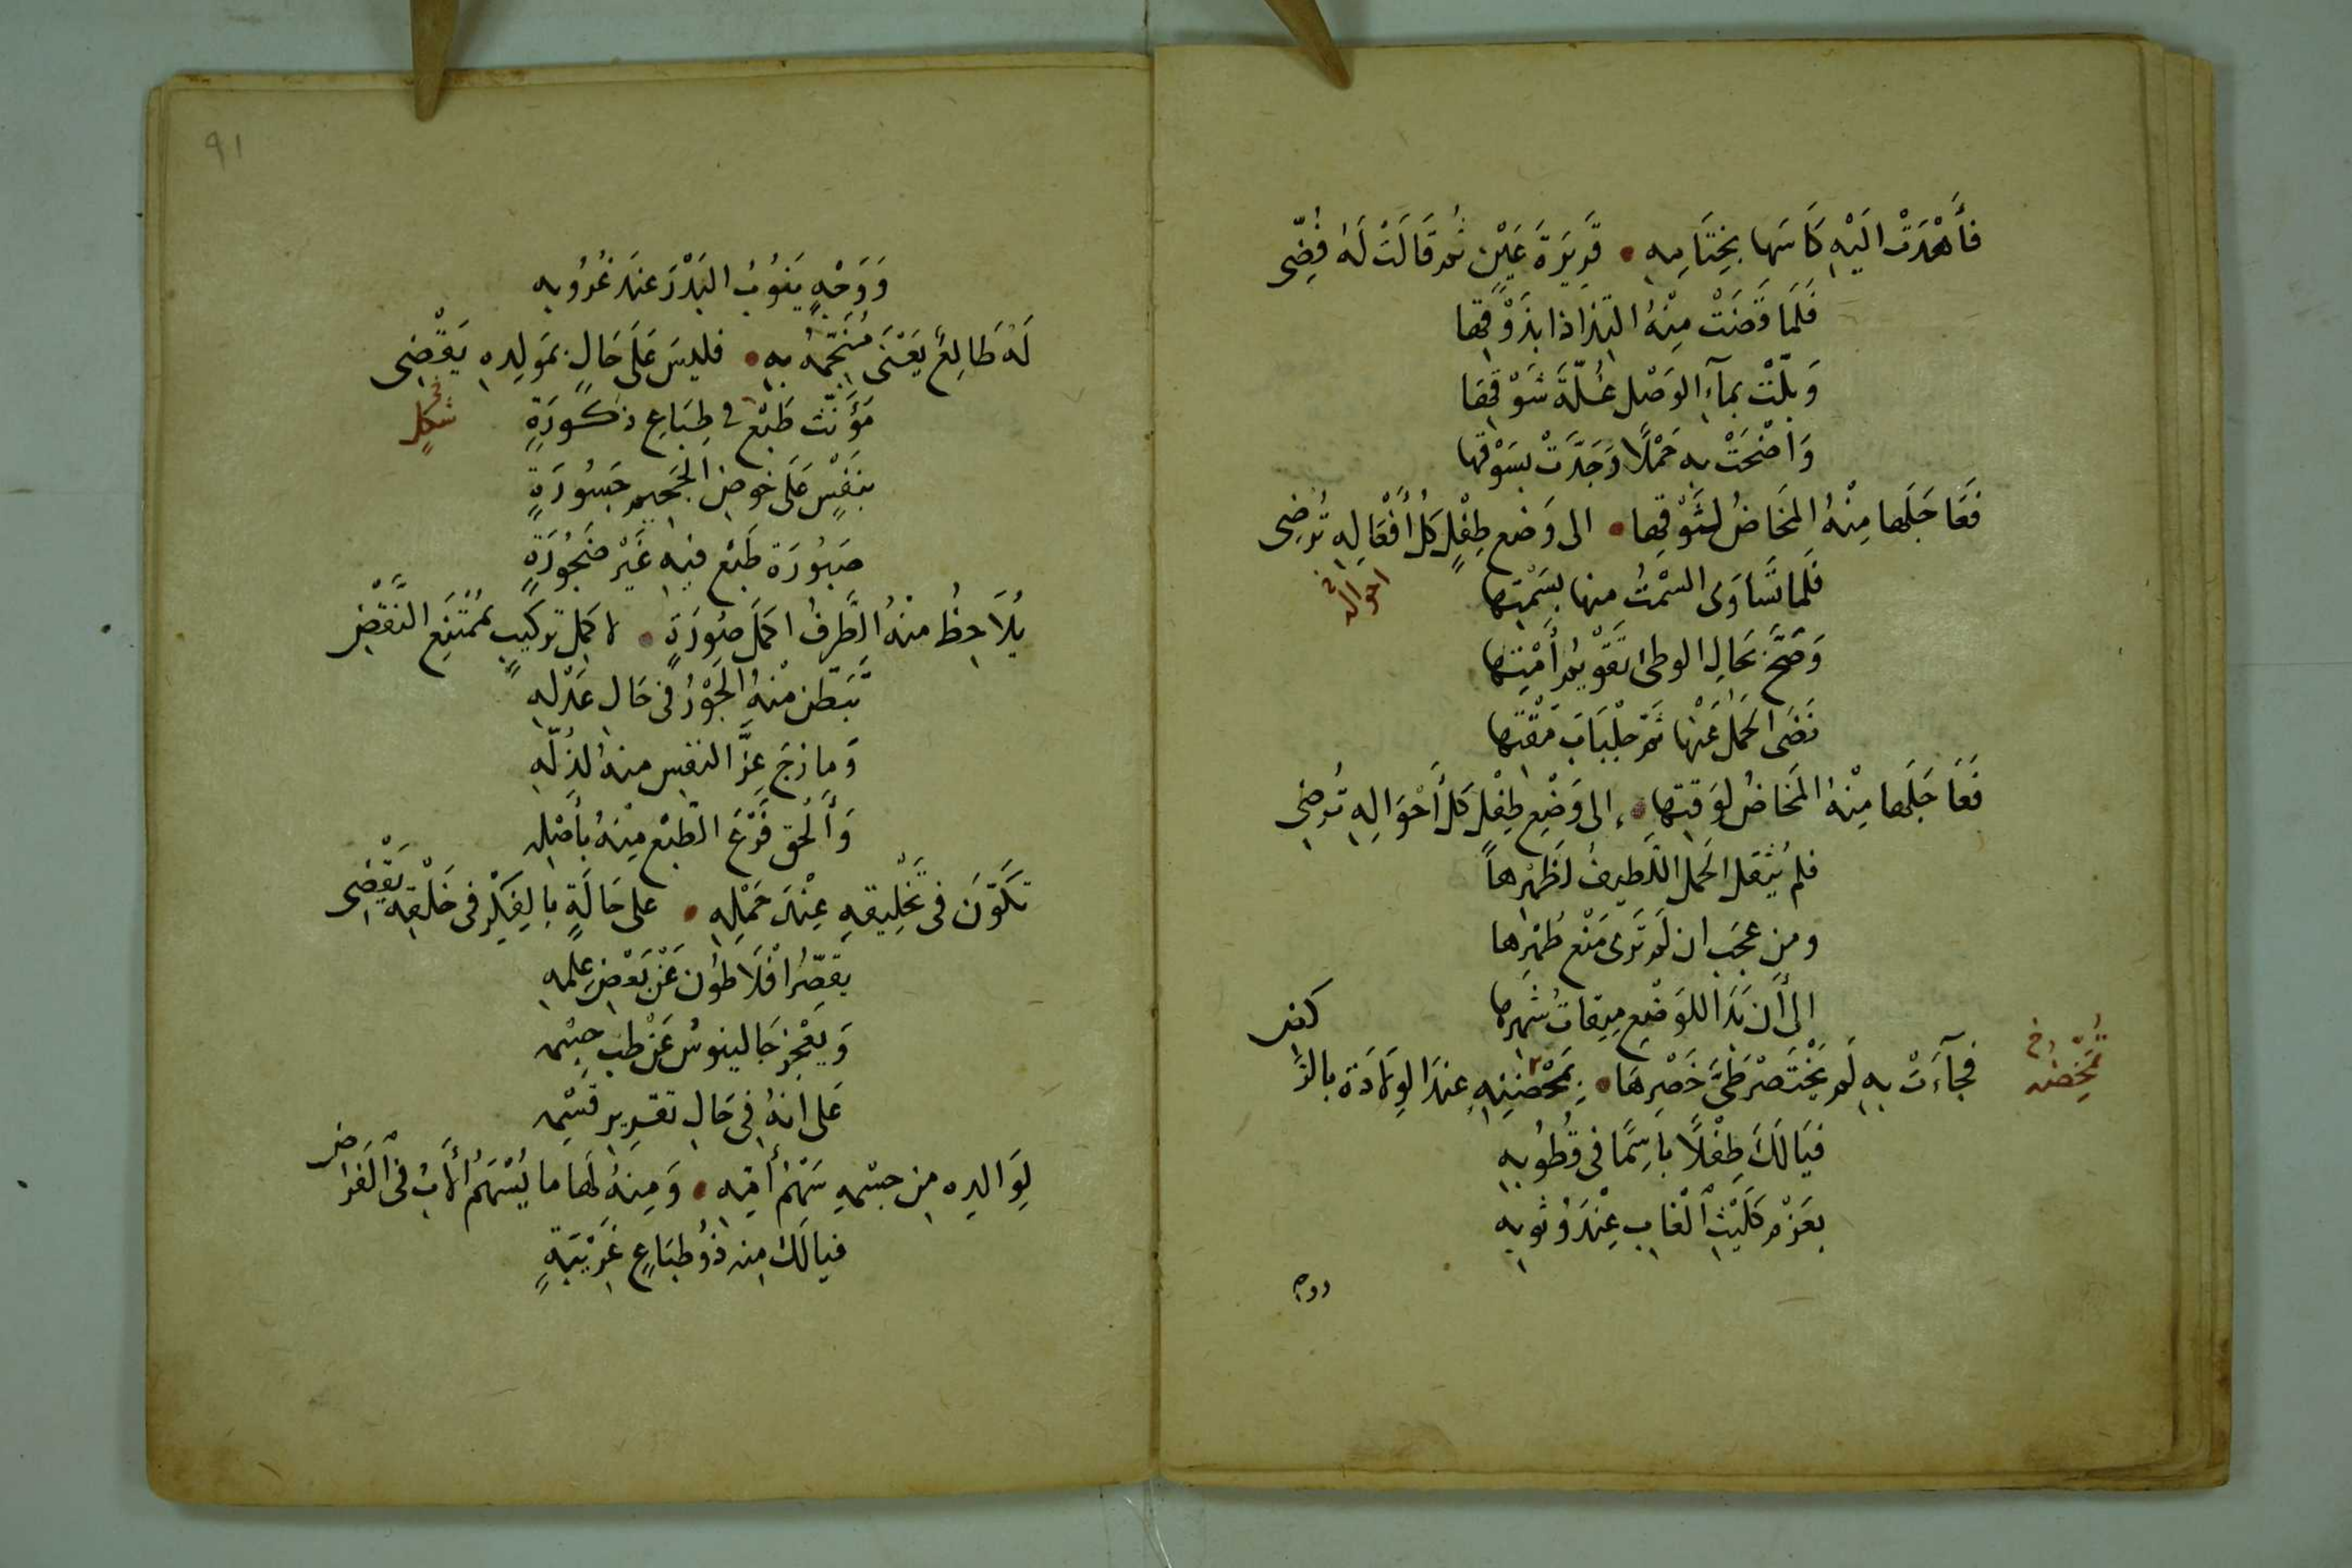 فَأَهْدَتْ اليْهِ كَاسَها بخِتَامِهِ • قَرِيرَةَ عَيْنٍ ثُم قَالَتْ لَهُ فُضِّى
فَلَمَا قَضَتْ مِنْهُ التِذاذا بذَوْقِها
وَبلّتْ بمآءِ الوَصْل غُلّةَ شَوْقِها
وَاضْحَتْ بهِ حَمْلًا وَجَدَّتْ بسَوْقها
فَعَاجَلَها مِنْهُ المَخَاضُ لشَوْقِها • الى وَضع طِفْلٍ كُل أَفْعَالِهِ تُرضِى
احواله خ
فَلما تَسَاوَى السمْتُ منها بسَمْتِها
وَصَحَّ بحَالِ الوطئ تَقوْيمُ أَمْتِها
نَضَى الحَمْلُ عَنْها ثَم جِلْبَابَ مَقْتها
فَعَاجَلَها مِنْهُ المَخاضُ لوَقتِها • إلى وَضْعِ طِفْلٍ كل أَحْوَالِهِ تُرضِى
فلم يُثْقل الحَمل اللَّطِيفُ لَظَهْرِهاً
ومن عجَبٍ ان لَم تَرى مَنْع طُهْرِها
الى أَن بَدَا للوَضْعِ مِيقاتُ شَهرِها
كفى
فَجآءَتْ بهِ لَم يَخْتَصرْ طَىَّ خَصْرِهَا • بِمَحْضنِهِ عندَ الوِلَادَة بالرَّ
تُمَخِّضه خ
فَيَا لَكَ طِفْلًا بَاسِمًا فى قُطُوبِهِ
بعَزْمٍ كَلَيْثِ الْغَابِ عِنْدَ وُثوبِهِ
ووجه
٩١
وَوَجْهٍ يَنُوبُ البَدْرَ عندَ غُرُوبه
لَهُ طَالِعٌ يَعْنَى مُنَجّمُهُ بهِ • فليسَ عَلَى حَالٍ بمَولِده يَقْضِى
مَؤَنّث طَبْعٍ فى طِبَاعِ ذكُورَةٍ
شكلٍ خ
بنَفْسٍ عَلَى خوضِ الجَحيم جَسُورَةٍ
صَبُورَة طَبْع فيهِ غَيْر ضَجُورَةٍ
يُلَاحِظُ منْهُ الطَّرفُ اكمَلَ صُورَةٍ • لاكمَل تركيبٍ بمُمْتَنِع النَّقْضِ
تَبَطّن منْهُ الجَوْرُ فى حَال عَدْلهِ
وَمازَجَ عِزَّ النفسِ منهُ لذُلّهِ
وَأَلْحق فَرْعَ الطّبْع مِنْهُ بأصْلِهِ
تكَوّنَ فى تَخْلِيقهِ عِنْدَ حَمْلِهِ • على حَالَةٍ بالفِكْرِ فى خَلْقهِ يَقْضِى
يقصّرُ افْلَاطون عَنْ بَعْضِ عِلمهِ
وَيَعْجِز جَالينوسُ عَنْ طب جسْمهِ
عَلى انهُ فى حَالِ تقدِير قسْمِهِ
لِوَالِدِه مِن جسْمهِ سَهْمُ أُمّهِ • وَمِنهُ لهَا ما يُسْهَمُ الأَبُ فى الفَرَائض
فيالَكَ منه ذُو طبَاعٍ غَرِيْبَةٍ